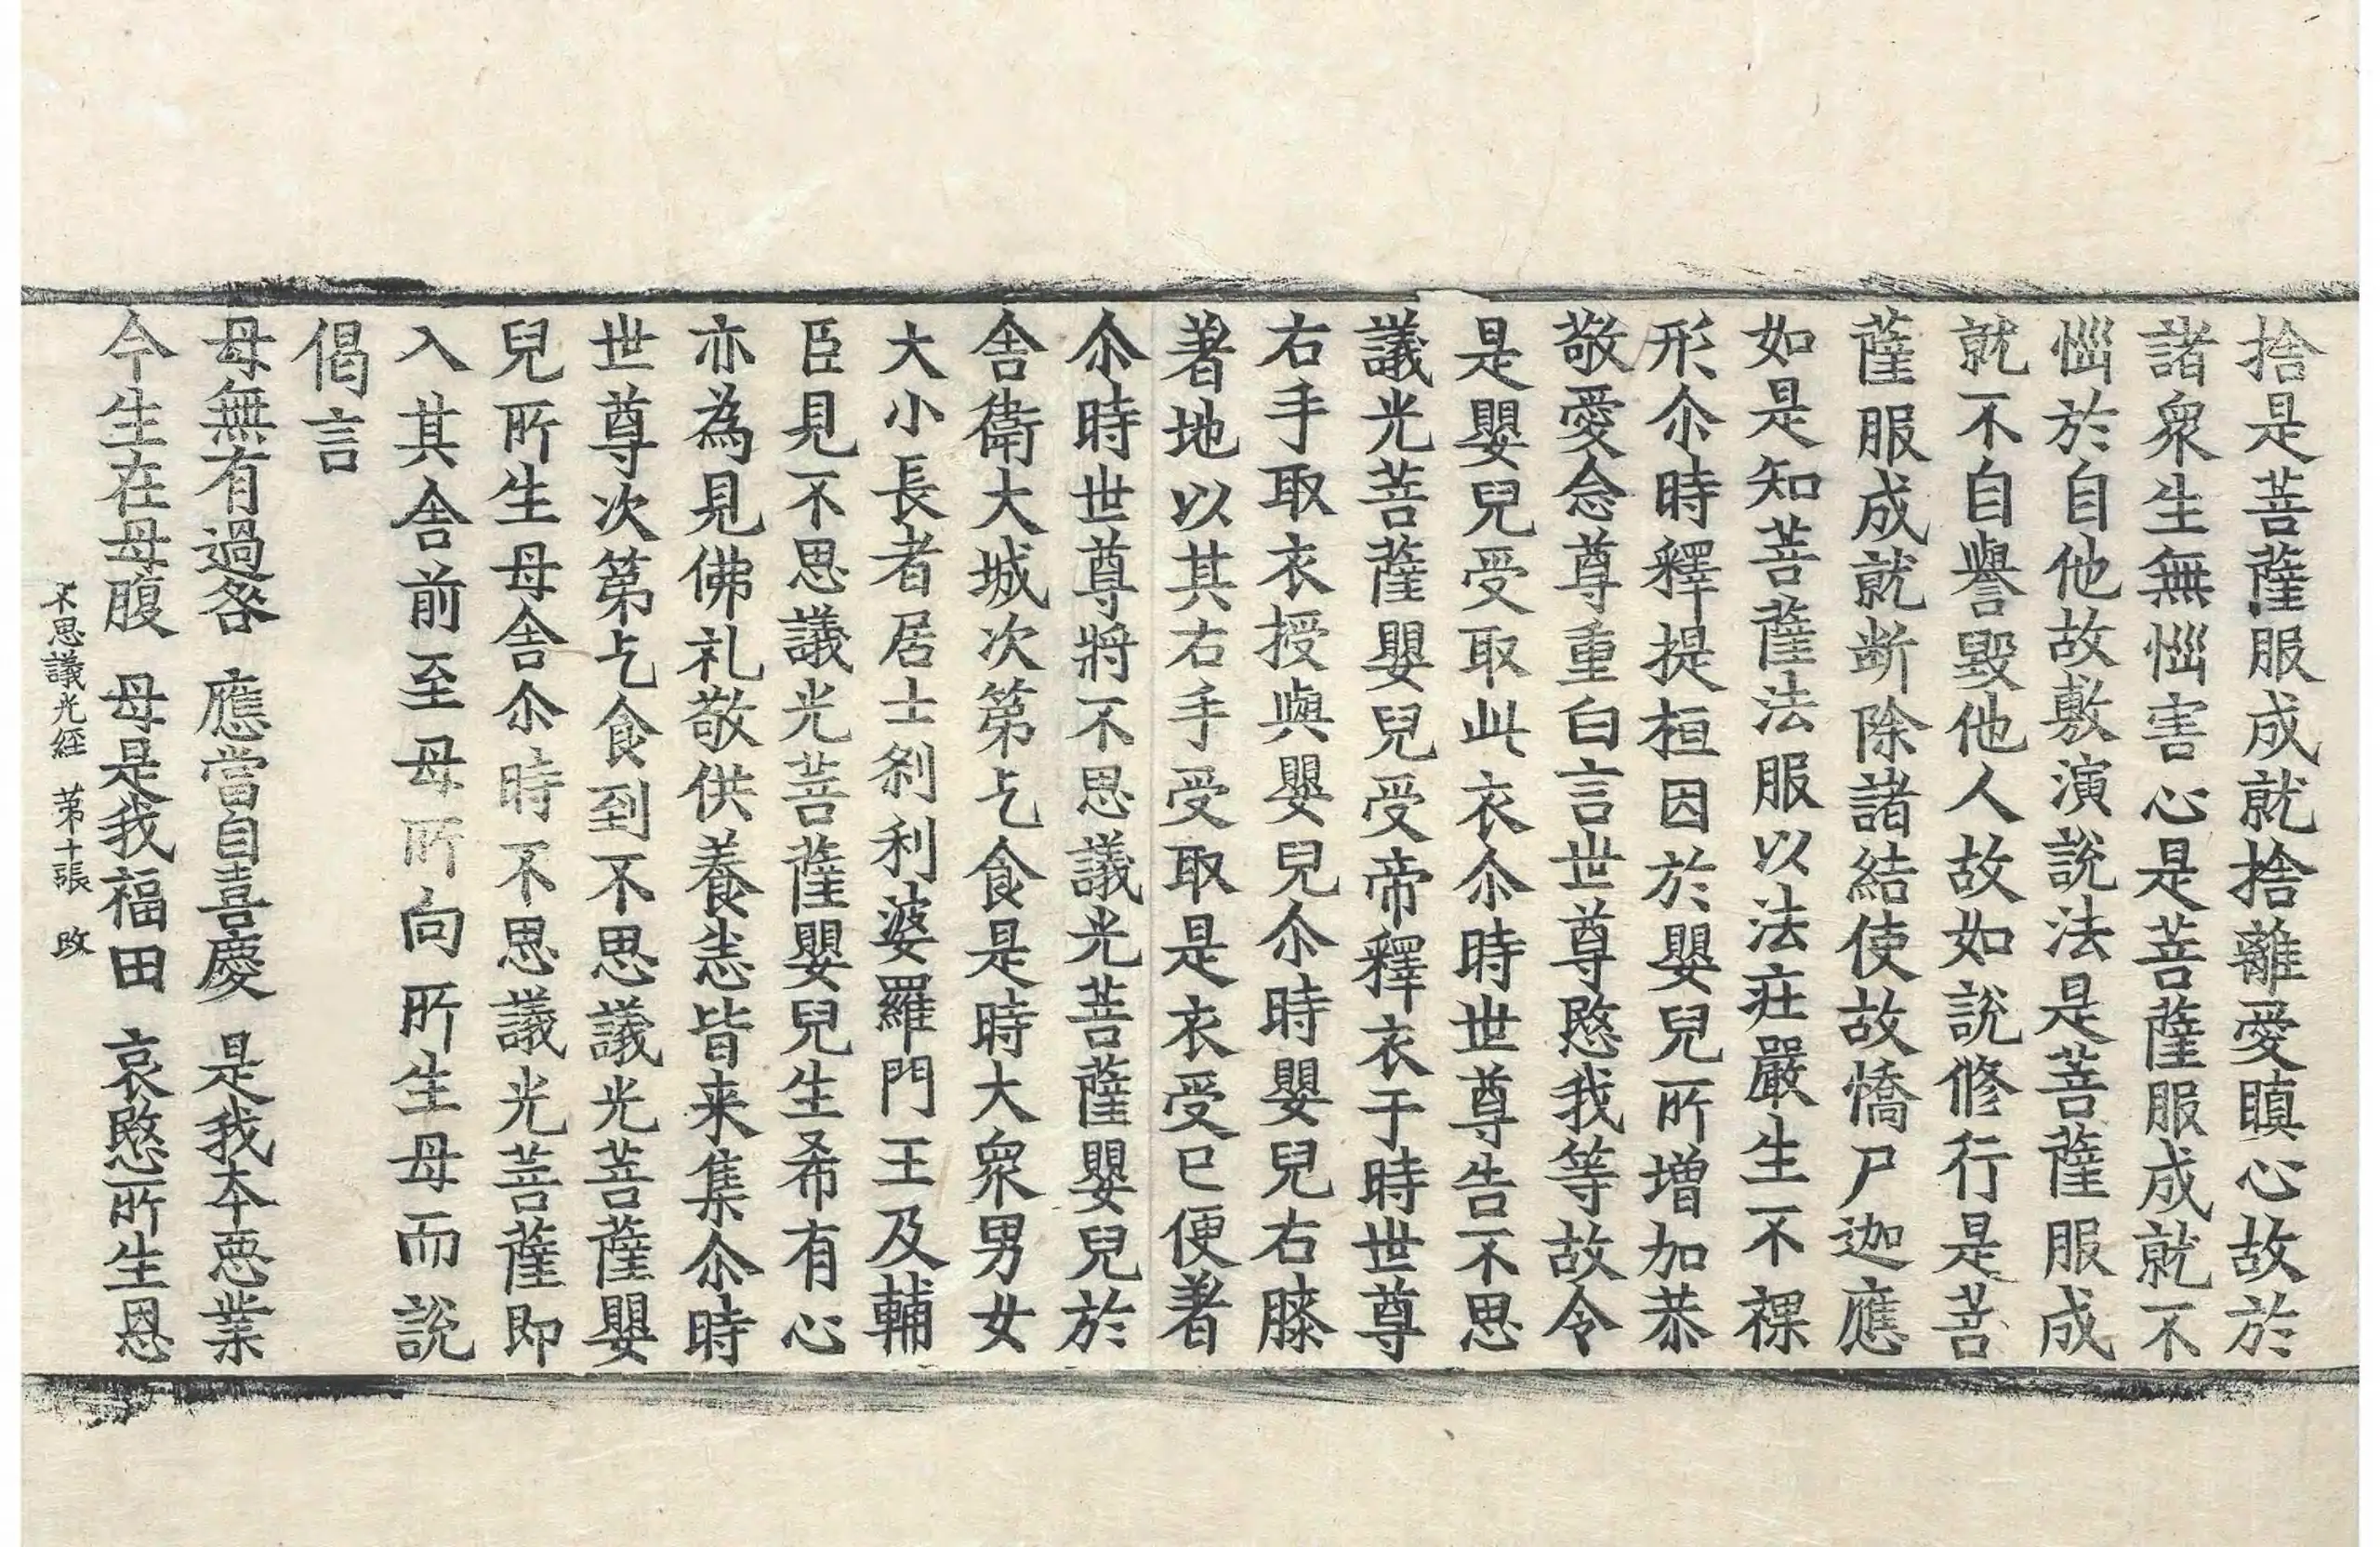 捨是菩薩服成就捨離愛瞋心故於
諸衆生無惱害心是菩薩服成就不
惱於自他故敷演說法是菩薩服成
就不自譽毀他人故如說修行是菩
薩服成就斷除諸結使故憍尸迦應
如是知菩薩法服以法莊嚴生不裸
形尒時釋提桓因於嬰兒所增加恭
敬愛念尊重白言世尊愍我等故令
是嬰兒受取此衣尒時世尊告不思
議光菩薩嬰兒受帝釋衣于時世尊
右手取衣授與嬰兒尒時嬰兒右膝
著地以其右手受取是衣受已便著
尒時世尊將不思議光菩薩嬰兒於
舍衛大城次第乞食是時大衆男女
大小長者居士刹利婆羅門王及輔
臣見不思議光菩薩嬰兒生希有心
亦為見佛礼敬供養悉皆来集尒時
世尊次第乞食到不思議光菩薩嬰
兒所生母舍尒時不思議光菩薩即
入其舍前至母所向所生母而說
偈言
母無有過咎　應當自喜慶　是我本惡業
今生在母腹　母是我福田　哀愍所生恩
不思議光经　第十張　改